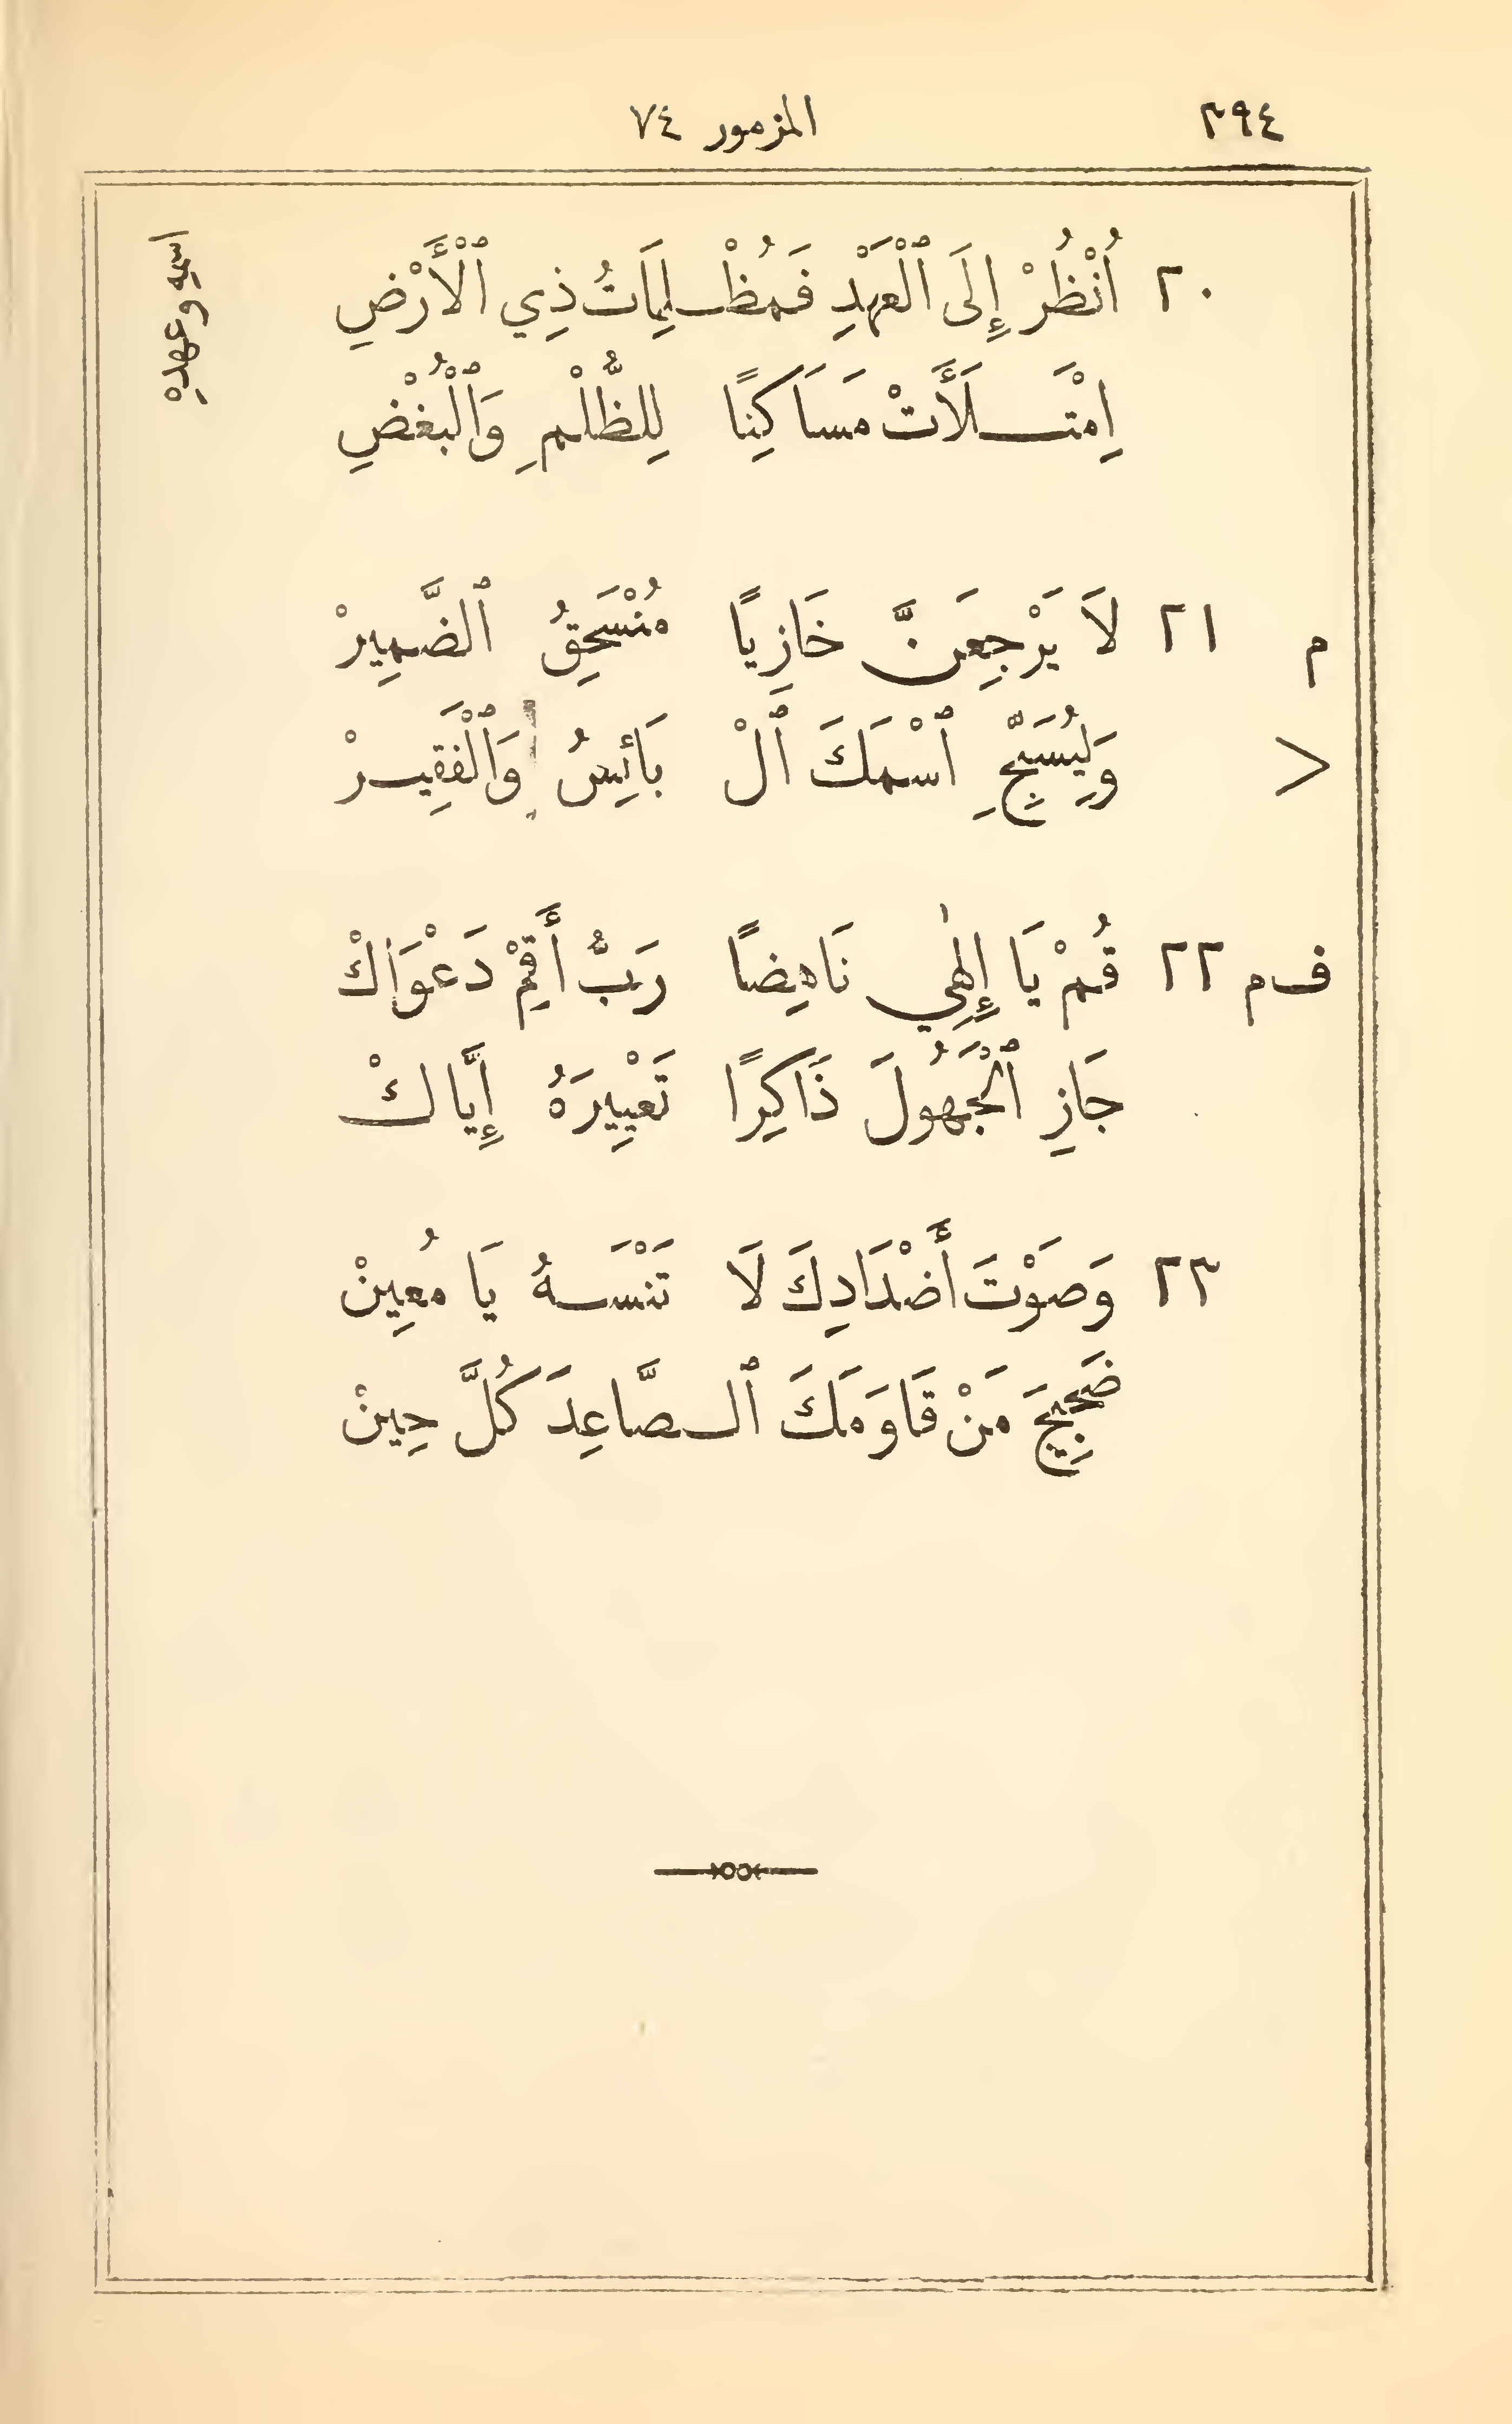 ٣٩٤ المزمور ٧٤
اسمهِ وعهدِهِ
٢٠ اُنْظُرْ إِلَى ٱلْعَهْدِ فَمُظْلِمَاتُ ذِي ٱلْأَرْضِ
اِمْتَلَأَتْ مَسَاكِنًا لِلظُّلْمِ وَٱلْبُغْضِ
م ٢١ لَا يَرْجِعَنَّ خَازِيًا مُنْسَحِقُ ٱلضَّمِيرْ
> وَلِيُسَبِّحِ ٱسْمَكَ ٱلْ بَائِسُ وَٱلْفَقِيرْ
ف م ٢٢ قُمْ يَا إِلٰهِي نَاهِضًا رَبُّ أَقِمْ دَعْوَاكْ
جَازِ ٱلْجَهُولَ ذَاكِرًا تَعْيِيرَهُ إِيَّاكْ
٢٣ وَصَوْتَ أَضْدَادِكَ لَا تَنْسَهُ يَا مُعِينْ
ضَجِيجَ مَنْ قَاوَمَكَ ٱلصَّاعِدَ كُلَّ حِينْ